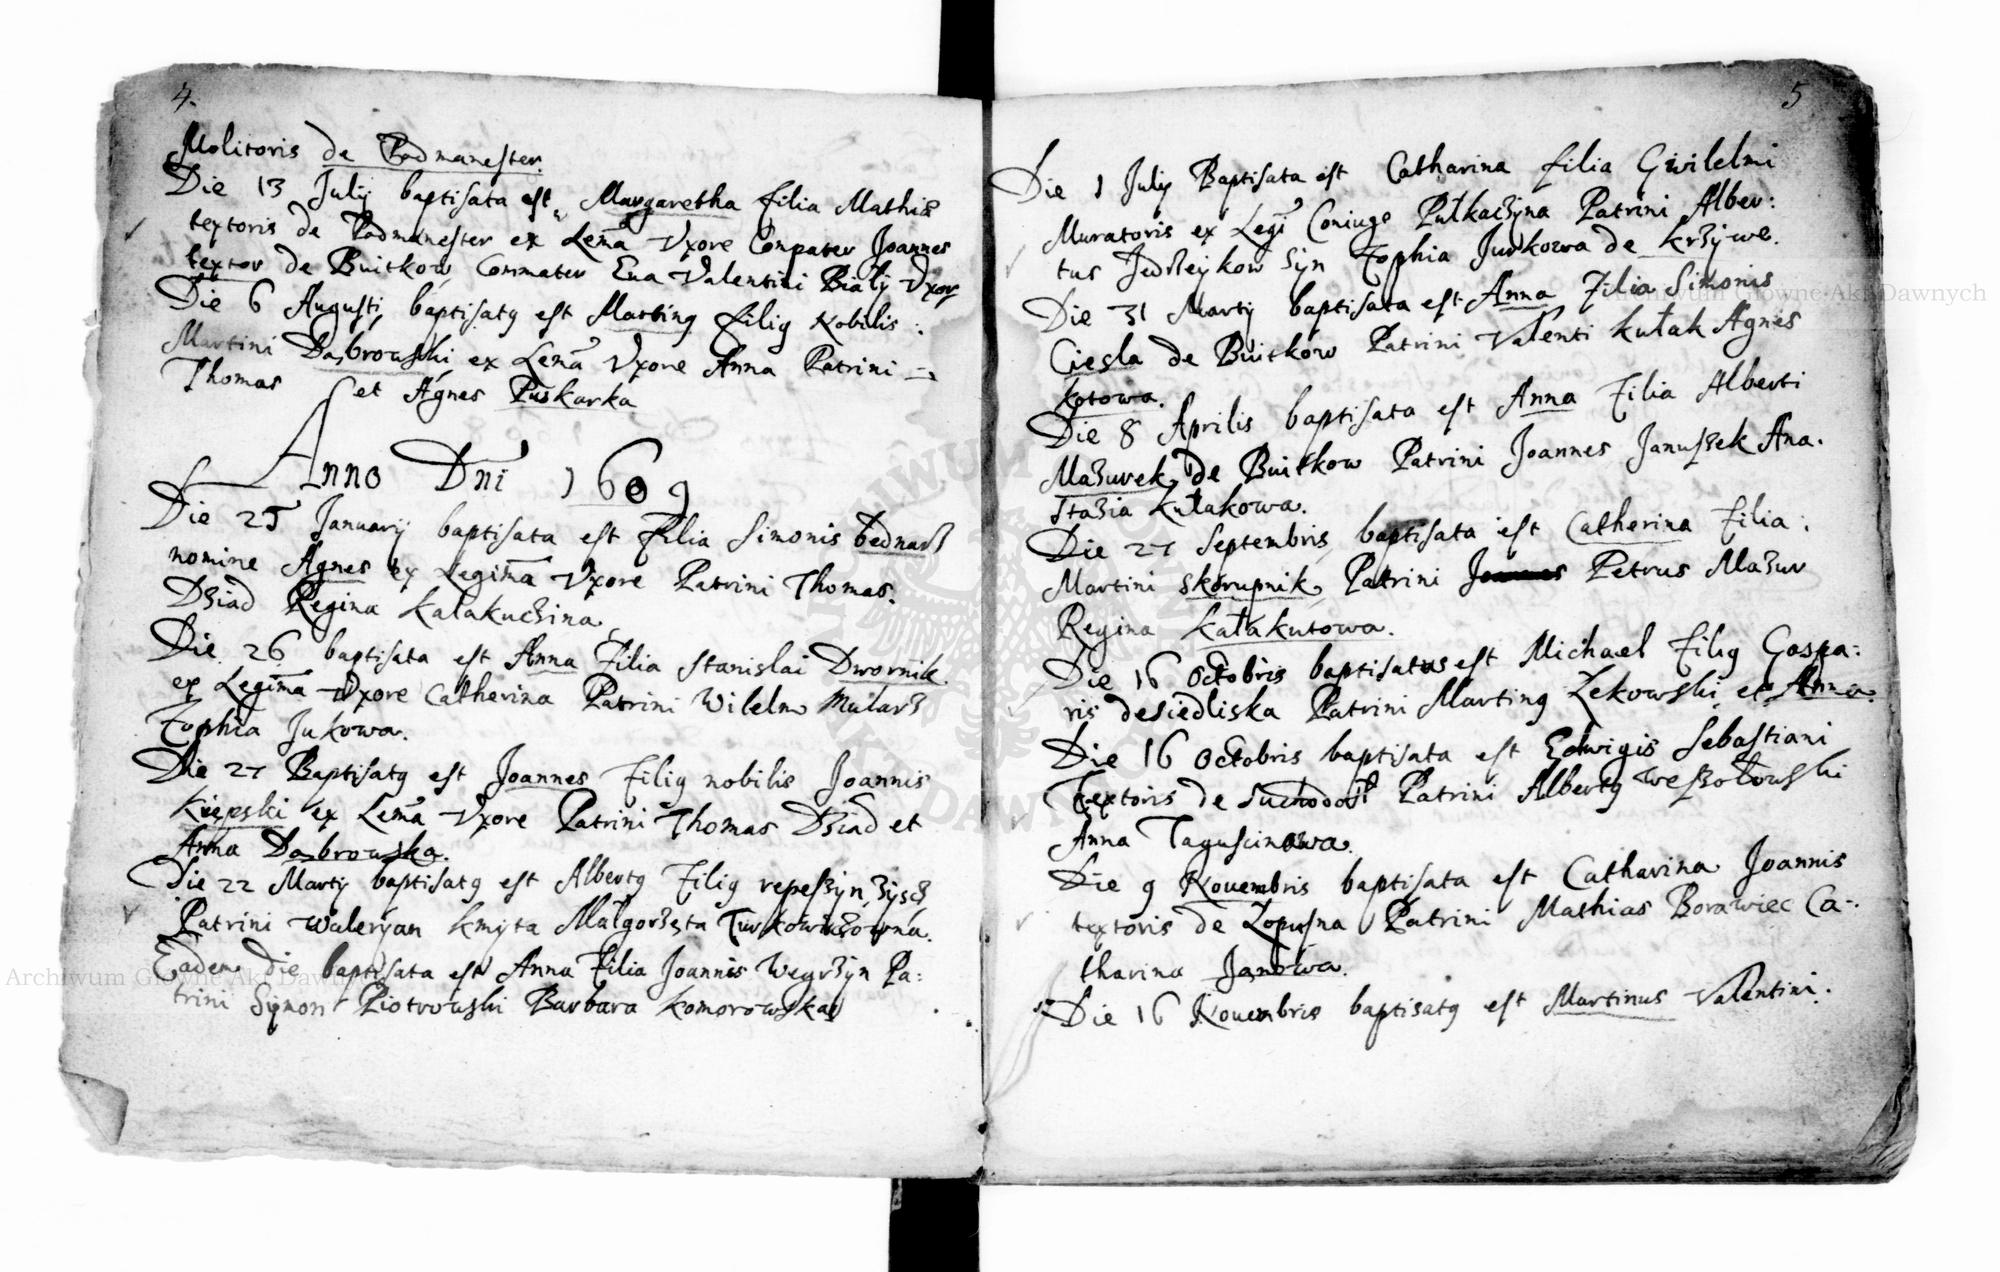 4.
Molitoris de Podmanester.
Die 13 July baptisata est Margaretha filia Mathiæ
textoris de Podmanester ex Lema Vxore Compater Joannes
textor de Buitkow, Commater Eua Valentini Biały Vxor
Die 6 Augusti baptisatg est Marting filig Nobilis :
Martini Dąbrowski ex Lema Vxore Anna Patrini
Thomas et Agnes Puskarka
Anno Dni 1609
Die 25 January baptisata est filia Simonis bednarz
nomine Agnes ex Legima Vxore Patrini Thomas.
Dziad Regina kałakuczina
Die 26 baptisata est Anna Filia Stanislai Dwornik.
ex Legima Vxore Catherina Patrini Wilelm Mularz
Zophia Jukowa.
Die 27 Baptisatg est Joannes Filig nobilis Joannis
Kiepski ex Lema Vxore Patrini Thomas Dziad et
Anna Dąbrowska.
Die 22 Marty baptisatg est Albertg Filig
Patrini Waleryan Kmyta Małgorzęta
Eadem die baptisata est Anna Filia Joannis Węgrzyn Pa:
trini Symon Piotrowski Barbara Komorowska
5
Die 1 July Baptisata est Catharina filia Gwilelmi
Muratoris ex Legi Coniuge Pułkaczyna Patrini Alber:
tus Jędrzeykow Syn Zophia Jurkowa de Krzywe.
Die 31 Marty baptisata est Anna Filia Simonis
Ciesla de Buitkow Patrini Valenti kułak Agnes
kotowa.
Die 8 Aprilis baptisata est Anna Filia Alberti
Mazurek de Buitkow Patrini Joannes Januszek Ana.
stazia kułakowa.
Die 27 Septembris baptisata est Catherina Filia :
Martini Skorupnik Patrini Petrus Mazur
Regina kałakutowa.
Die 16 Octobris baptisatus est Michael Filig Gaspa:
ris de siedliska Patrini Marting Żekowski et Anna.
Die 16 Octobris baptisata est Edwigis Sebastiani
Textoris de Suchodoł Patrini Albertg Wesołowski
Anna Taguscinowa.
Die 9 Nouembris baptisata est Catharina Joannis
textoris de Łopusna Patrini Mathias Borawiec Ca-.
tharina Janowa.
Die 16 Nouembris baptisatg est Martinus Valentini.
Archiwum Główne Akt Dawnych
Archiwum Główne Akt Dawnych